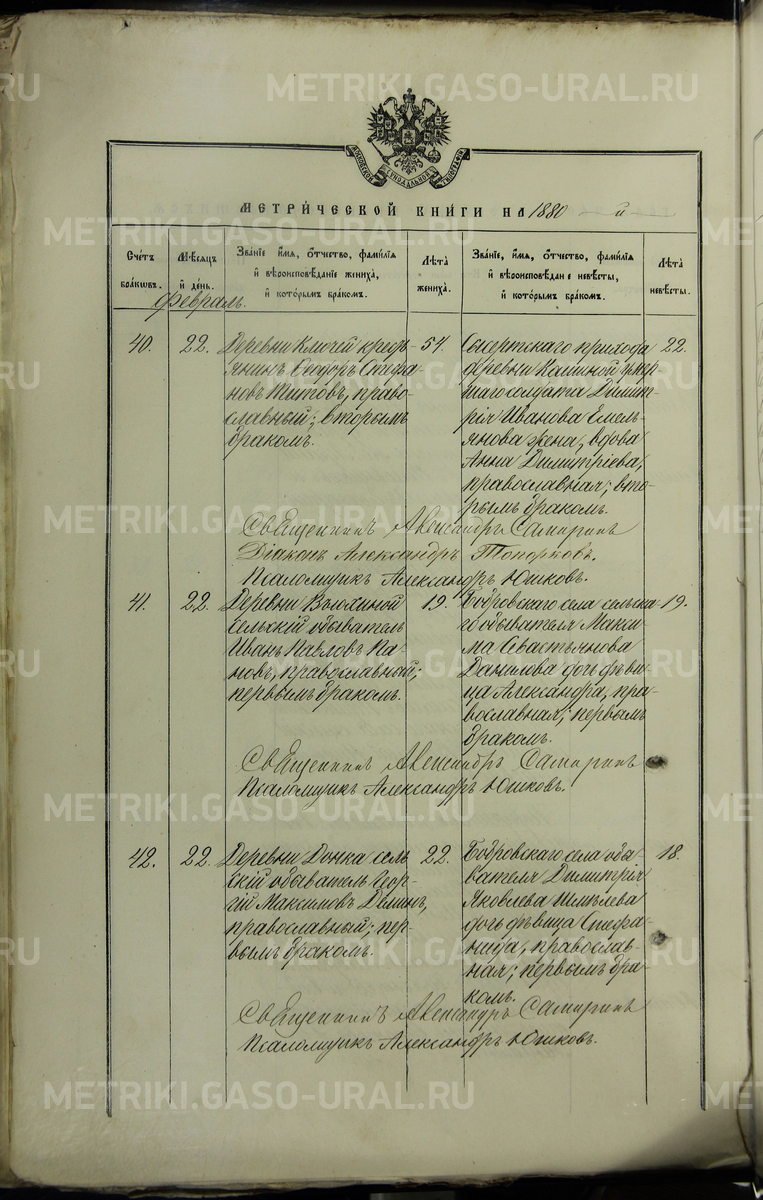 METRIKI.GASO-URAL.RU
МОСКОВСКОЙ СѴНОДАЛЬНОЙ ТИПОГРАФІИ
МЕТРИЧЕСКОЙ КНИГИ НА 1880 й
Счетъ браковъ.
Мѣсяцъ и день.
Званіе имя, отчество, фамилія
и вѣроисповѣданіе жениха,
и которымъ бракомъ.
Лѣта жениха.
Званіе, имя, отчество, фамилія
и вѣроисповѣданіе невѣсты,
и которымъ бракомъ.
Лѣта невѣсты.
Февраль.
40. 22.
Деревни Ключей кресть-
янинъ Сидоръ Стефа-
новъ Титовъ, право-
славный; вторымъ
бракомъ.
54.
Сысертскаго прихода
деревни Кашиной умер-
шаго солдата Димит-
рія Иванова Емель-
янова жена, вдова
Анна Димитріева,
православная; вто-
рымъ бракомъ.
22.
Священникъ Александръ Самаринъ
Діаконъ Александръ Топорковъ.
Псаломщикъ Александръ Юшковъ.
41. 22.
Деревни
сельскій обыватель
Иванъ Павловъ Па-
новъ, православный;
первымъ бракомъ.
19.
Бобровскаго села сельска-
го обывателя Макси-
ма Севастьянова
Данилова дочь дѣви-
ца Александра, пра-
вославная; первымъ
бракомъ.
19.
Священникъ Александръ Самаринъ
Псаломщикъ Александръ Юшковъ.
42. 22.
Деревни сель-
скій обыватель Геор-
гій Максимовъ
православный; пер-
вымъ бракомъ.
22.
Бобровскаго села обы-
вателя Димитрія
Яковлева
дочь дѣвица Стефа-
нида, православ-
ная; первымъ бра-
комъ.
18.
Священникъ Александръ Самаринъ
Псаломщикъ Александръ Юшковъ.